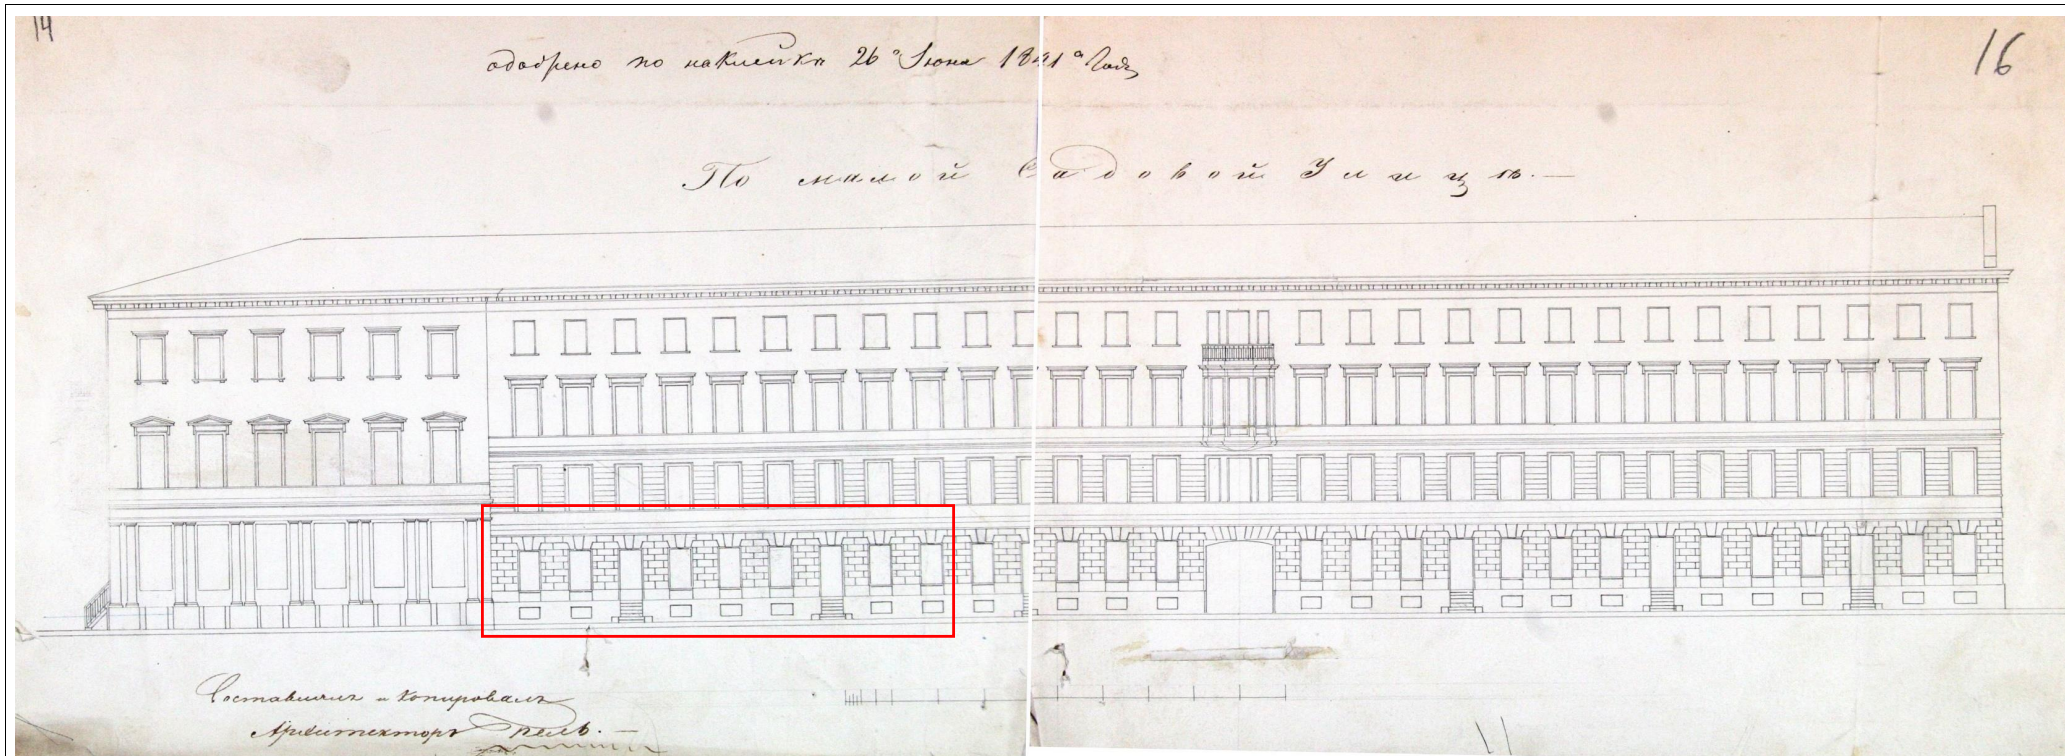 14
16
одобрено по наклейкѣ 26го Іюня 1841го Года
По малой Садовой Улицѣ.—
Составлялъ и копировалъ
Архитекторъ